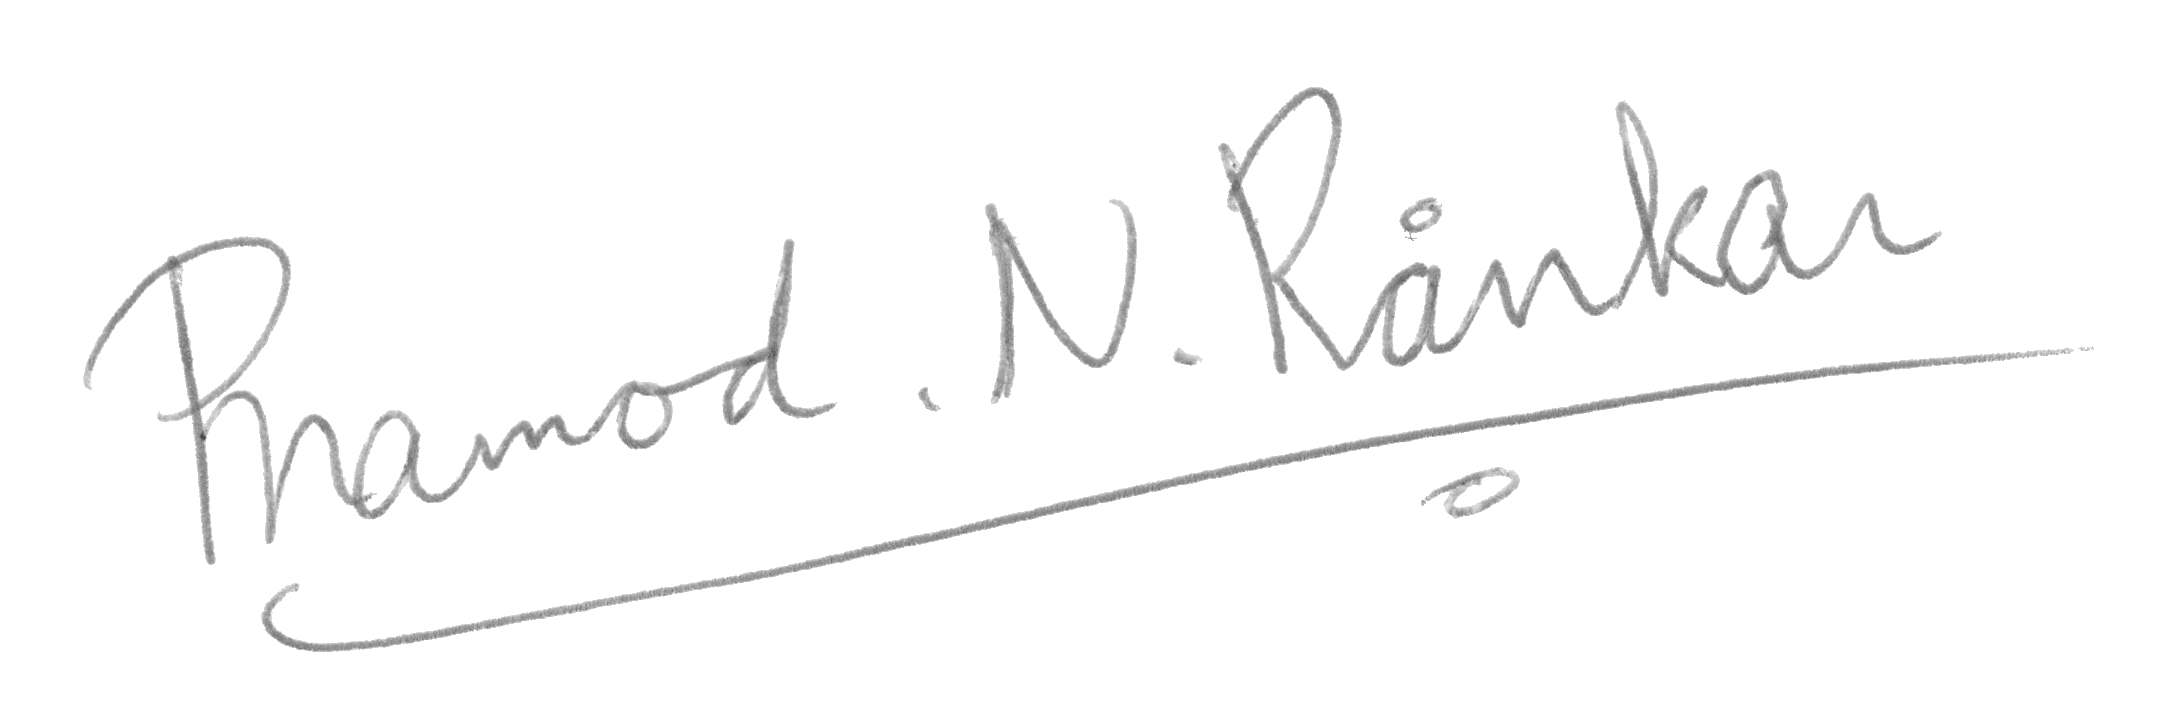 Pramod . N. Rånkar